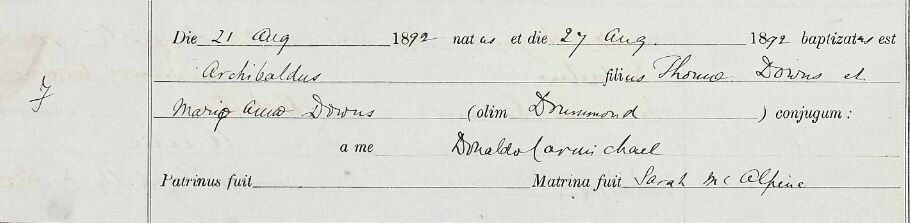 Die 21 Aug 1892 natus et die 27 Aug. 1892 baptizatus est
Archibaldus filius Thomæ Downs et
7 Mariæ Annæ Downs (olim Drummond) conjugum:
a me Donaldo Carmichael
Patrinus fuit Matrina fuit Sarah McAlpine